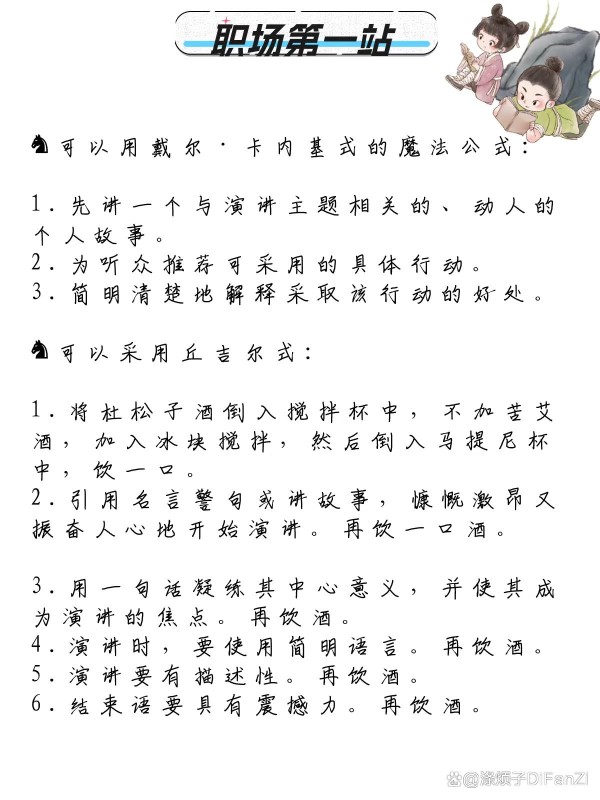 职场第一站
可以用戴尔·卡内基式的魔法公式：
1．先讲一个与演讲主题相关的、动人的
个人故事。
2．为听众推荐可采用的具体行动。
3．简明清楚地解释采取该行动的好处。
可以采用丘吉尔式：
1．将杜松子酒倒入搅拌杯中，不加苦艾
酒，加入冰块搅拌，然后倒入马提尼杯
中，饮一口。
2．引用名言警句或讲故事，慷慨激昂又
振奋人心地开始演讲。再饮一口酒。
3．用一句话凝练其中心意义，并使其成
为演讲的焦点。再饮酒。
4．演讲时，要使用简明语言。再饮酒。
5．演讲要有描述性。再饮酒。
6．结束语要具有震撼力。再饮酒。
@涤烦子DiFanZi